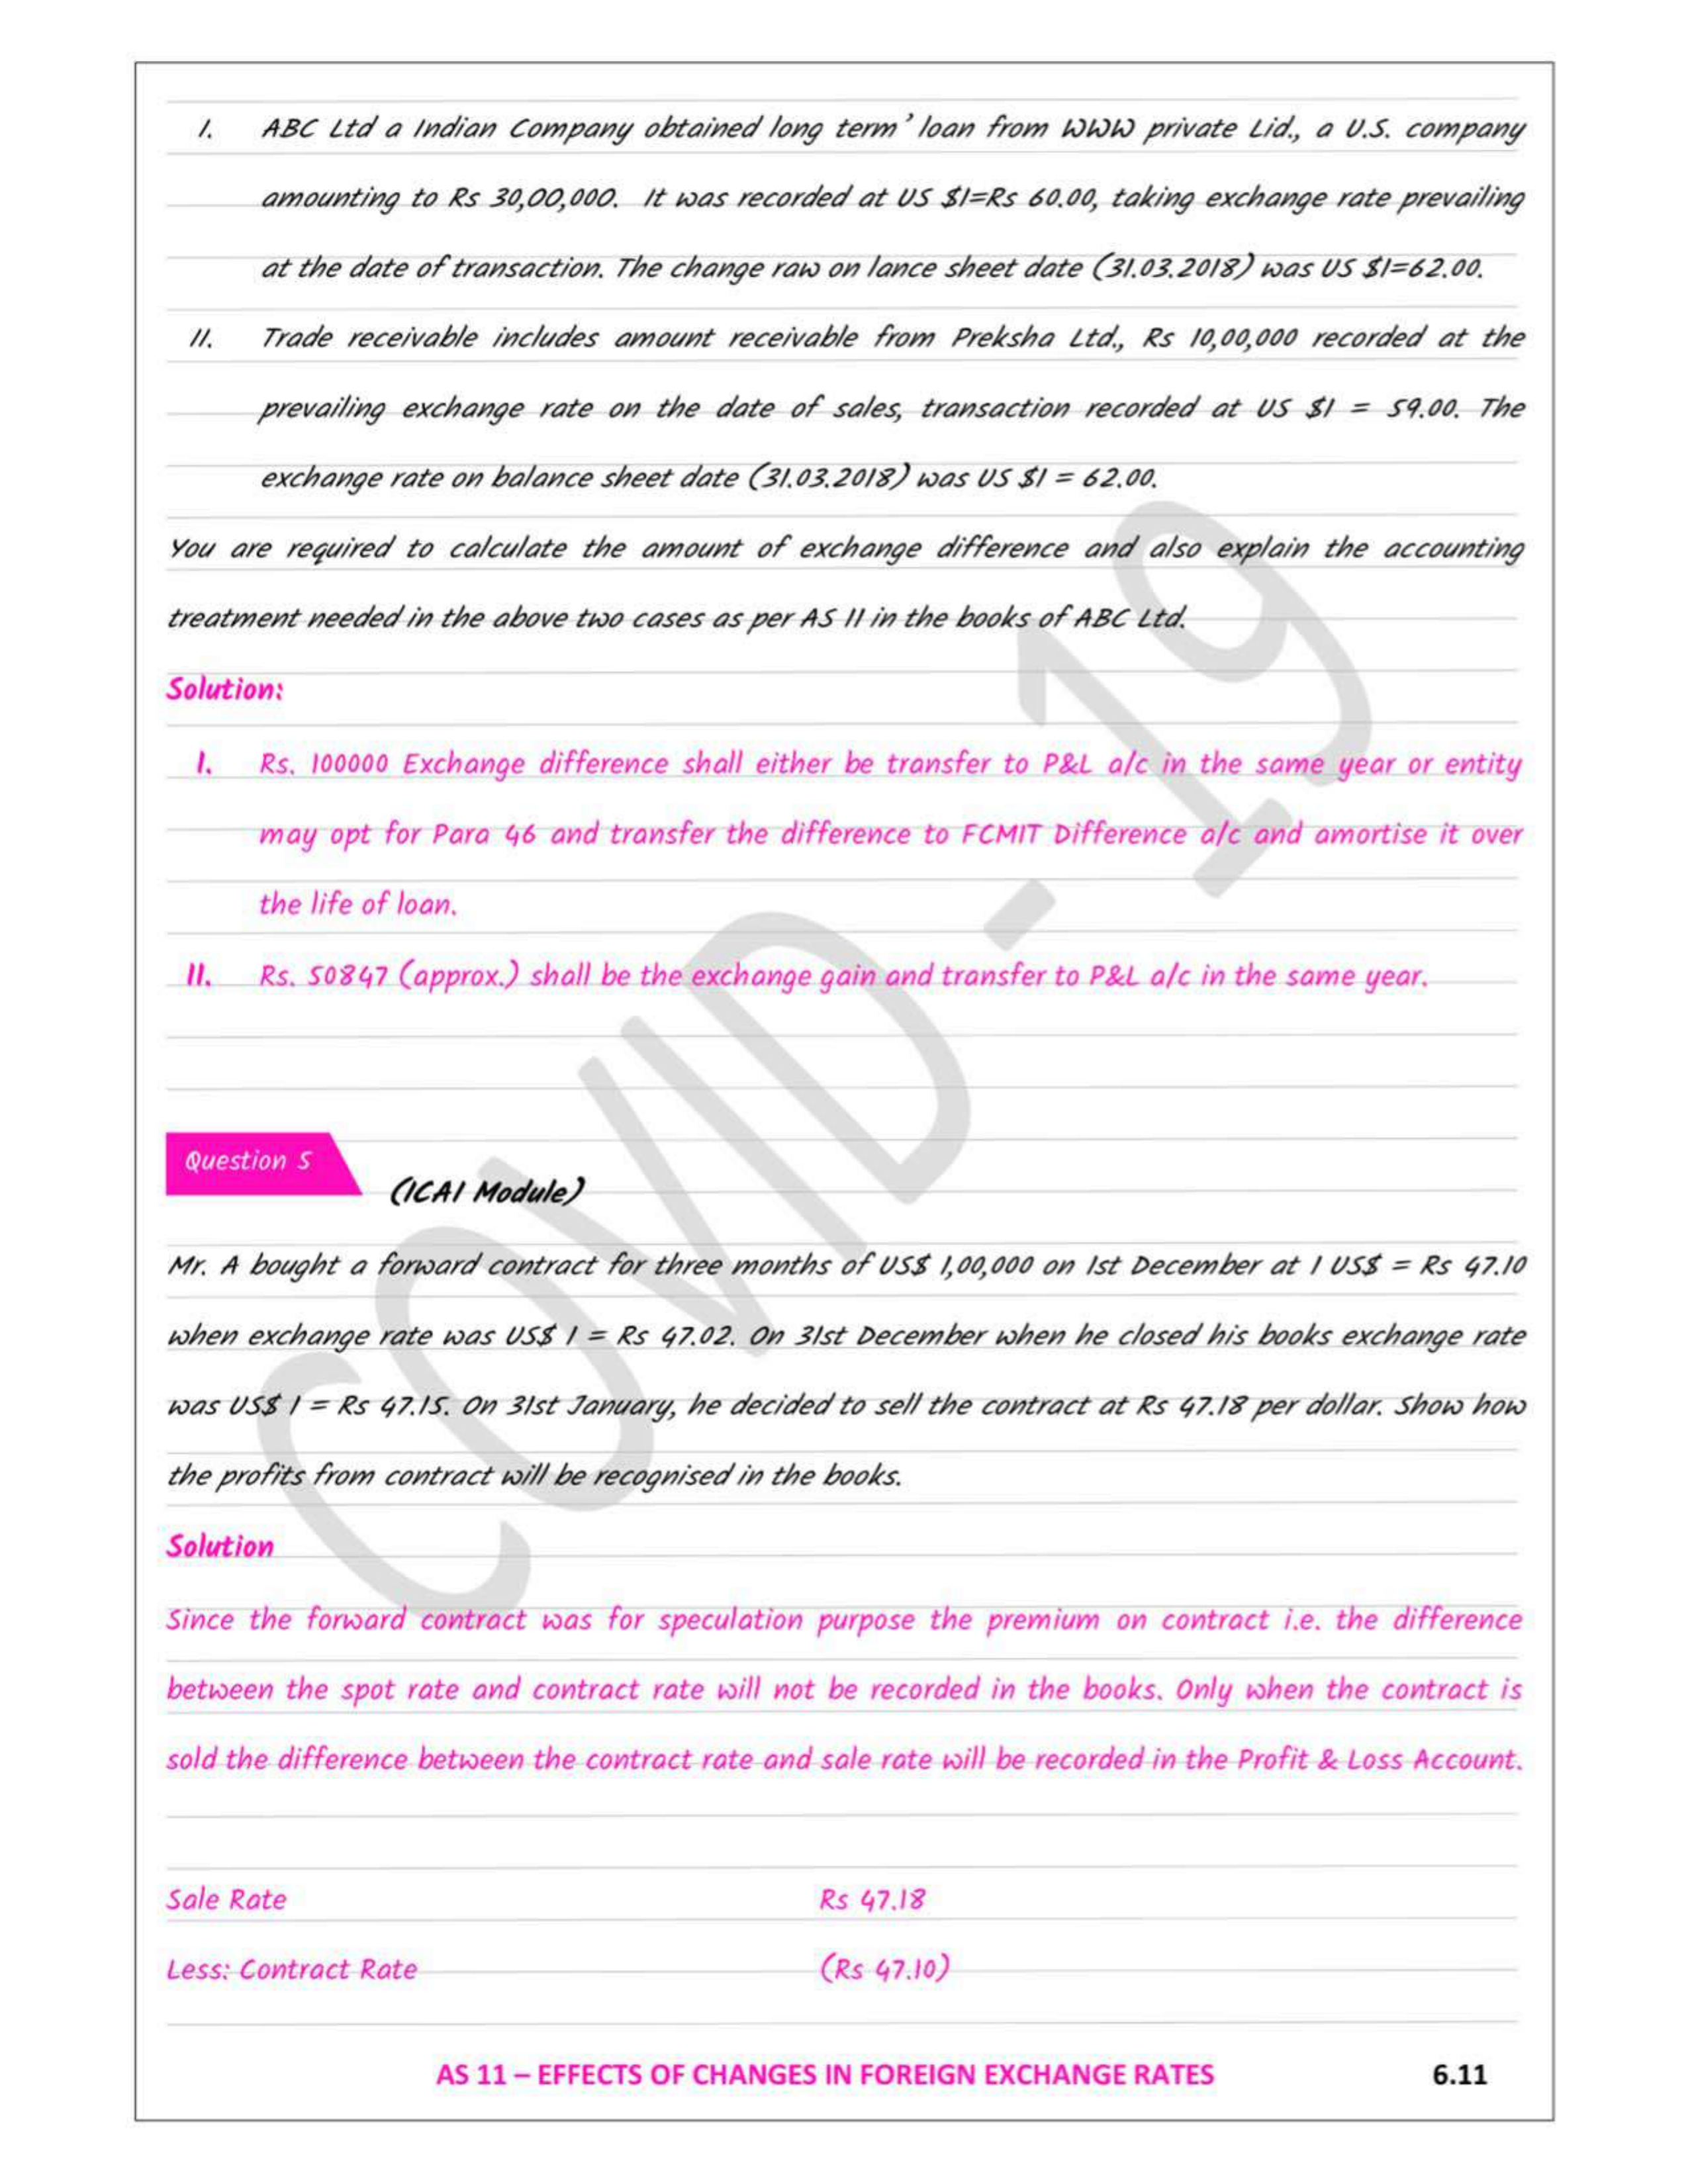 I. ABC Ltd a Indian Company obtained long term' loan from WWW private Lid., a U.S. company
amounting to Rs 30,00,000. It was recorded at US $1=Rs 60.00, taking exchange rate prevailing
at the date of transaction. The change raw on lance sheet date (31.03.2018) was US $1=62.00.
II. Trade receivable includes amount receivable from Preksha Ltd., Rs 10,00,000 recorded at the
prevailing exchange rate on the date of sales, transaction recorded at US $1 = 59.00. The
exchange rate on balance sheet date (31.03.2018) was US $1 = 62.00.
You are required to calculate the amount of exchange difference and also explain the accounting
treatment needed in the above two cases as per AS 11 in the books of ABC Ltd.
Solution:
I. Rs. 100000 Exchange difference shall either be transfer to P&L a/c in the same year or entity
may opt for Para 46 and transfer the difference to FCMIT Difference a/c and amortise it over
the life of loan.
II. Rs. 50847 (approx.) shall be the exchange gain and transfer to P&L a/c in the same year.
COVID - 19
Question 5
(ICAI Module)
Mr. A bought a forward contract for three months of US$ 1,00,000 on 1st December at 1 US$ = Rs 47.10
when exchange rate was US$ 1 = Rs 47.02. On 31st December when he closed his books exchange rate
was US$ 1 = Rs 47.15. On 31st January, he decided to sell the contract at Rs 47.18 per dollar. Show how
the profits from contract will be recognised in the books.
Solution
Since the forward contract was for speculation purpose the premium on contract i.e. the difference
between the spot rate and contract rate will not be recorded in the books. Only when the contract is
sold the difference between the contract rate and sale rate will be recorded in the Profit & Loss Account.
Sale Rate Rs 47.18
Less: Contract Rate (Rs 47.10)
AS 11 – EFFECTS OF CHANGES IN FOREIGN EXCHANGE RATES 6.11